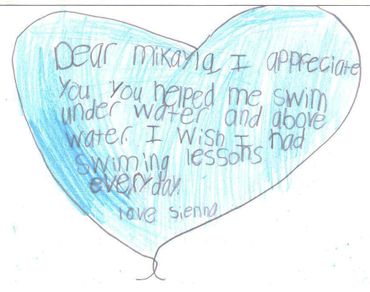 Dear mikayla I appreciate
you you helped me swim
under water and above
water. I wish I had
swiming lessons
everyday.
love sienna